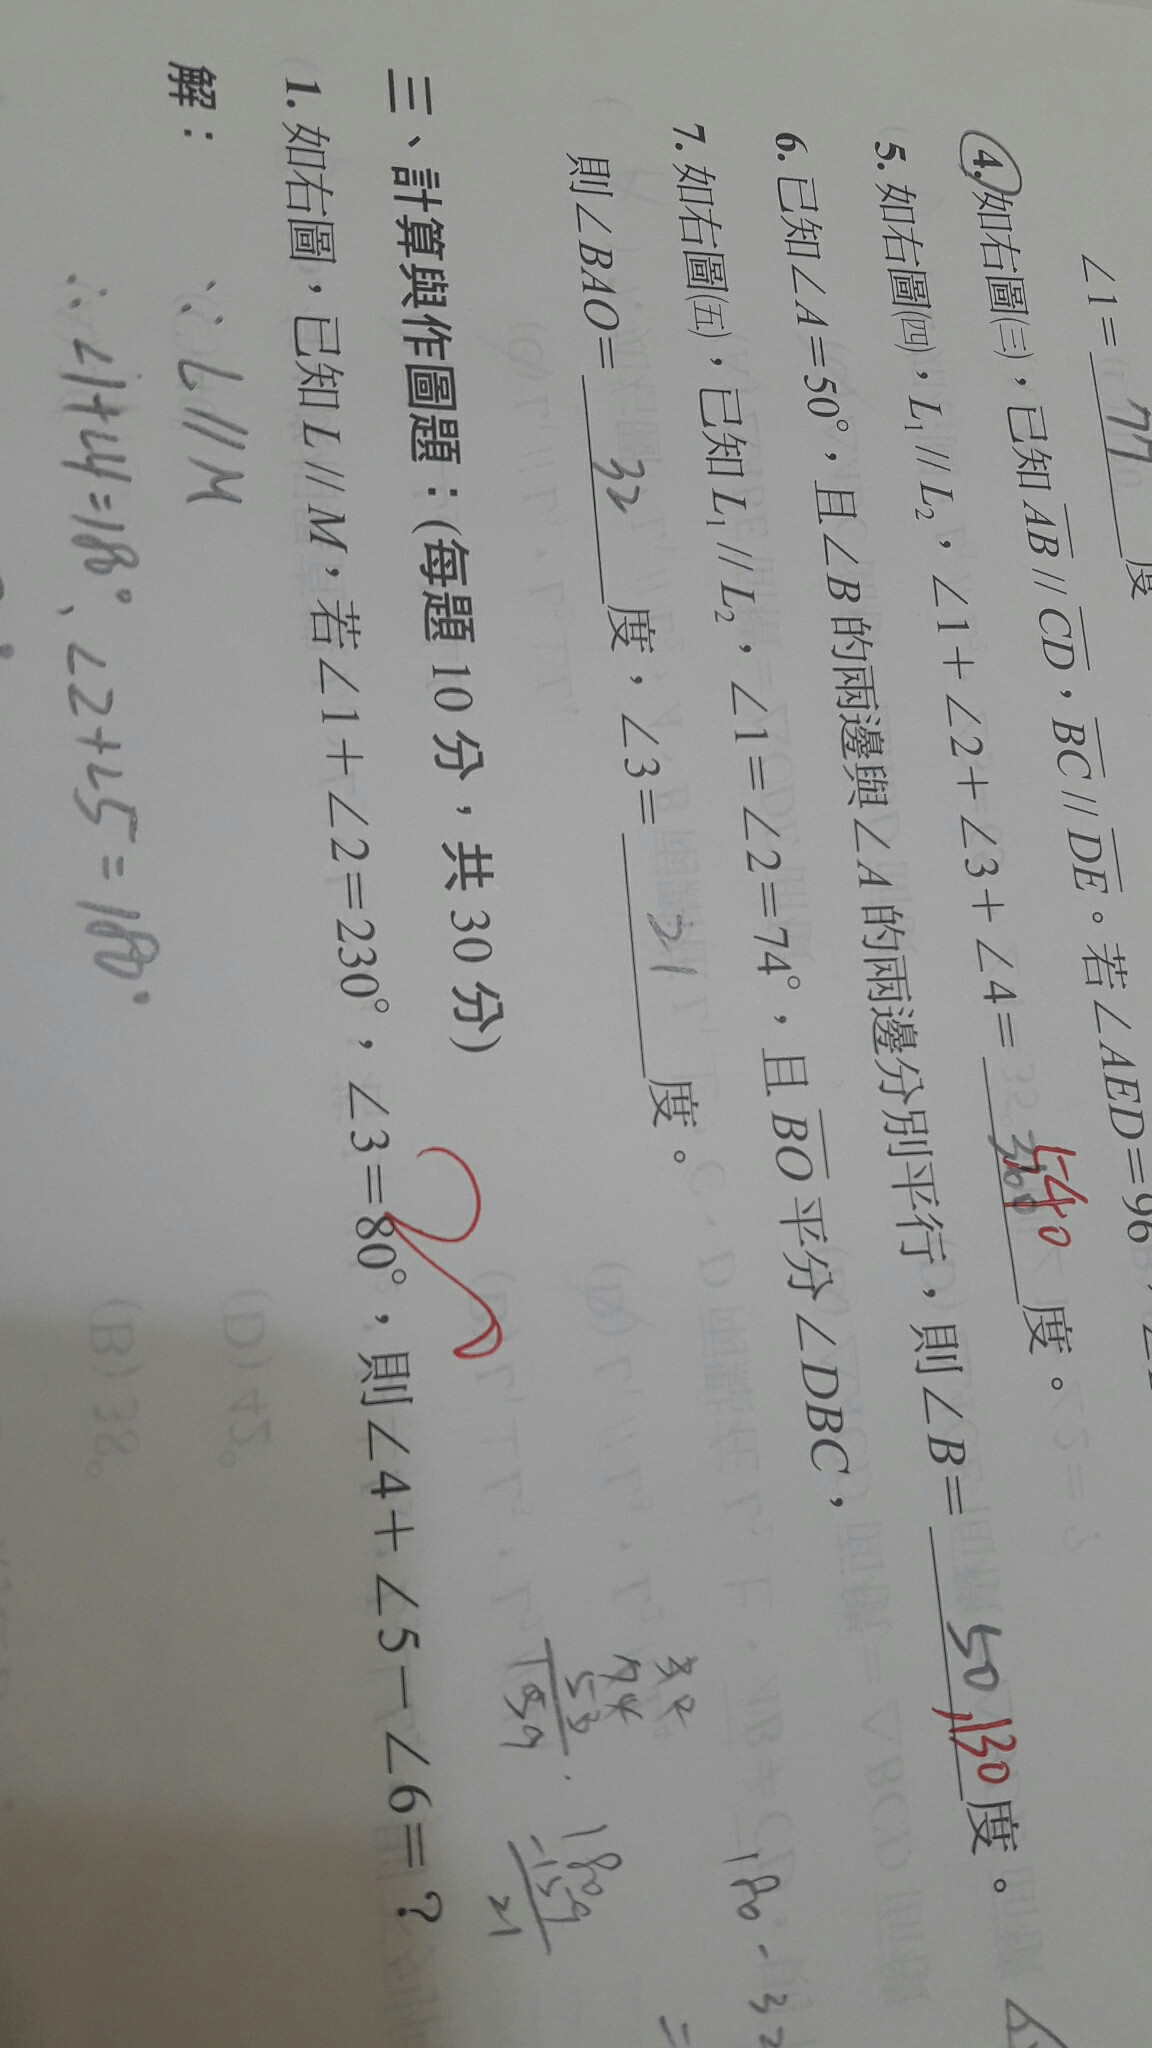 ∠1= 77 度
4. 如右圖(三)，已知AB // CD，BC // DE。若∠AED=96
5. 如右圖(四)，L₁ // L₂，∠1+∠2+∠3+∠4= 360 540 度。
6. 已知∠A=50°，且∠B的兩邊與∠A的兩邊分別平行，則∠B= 50,130 度。
7. 如右圖(五)，已知L₁ // L₂，∠1=∠2=74°，且BO平分∠DBC，
則∠BAO= 32 度，∠3= 21 度。
180-32
=
74
53
159
180
-159
21
三、計算與作圖題：(每題10分，共30分)
1. 如右圖，已知L // M，若∠1+∠2=230°，∠3=80°，則∠4+∠5-∠6=？
解： ∵L // M
∴∠1+∠4=180°、∠2+∠5=180°